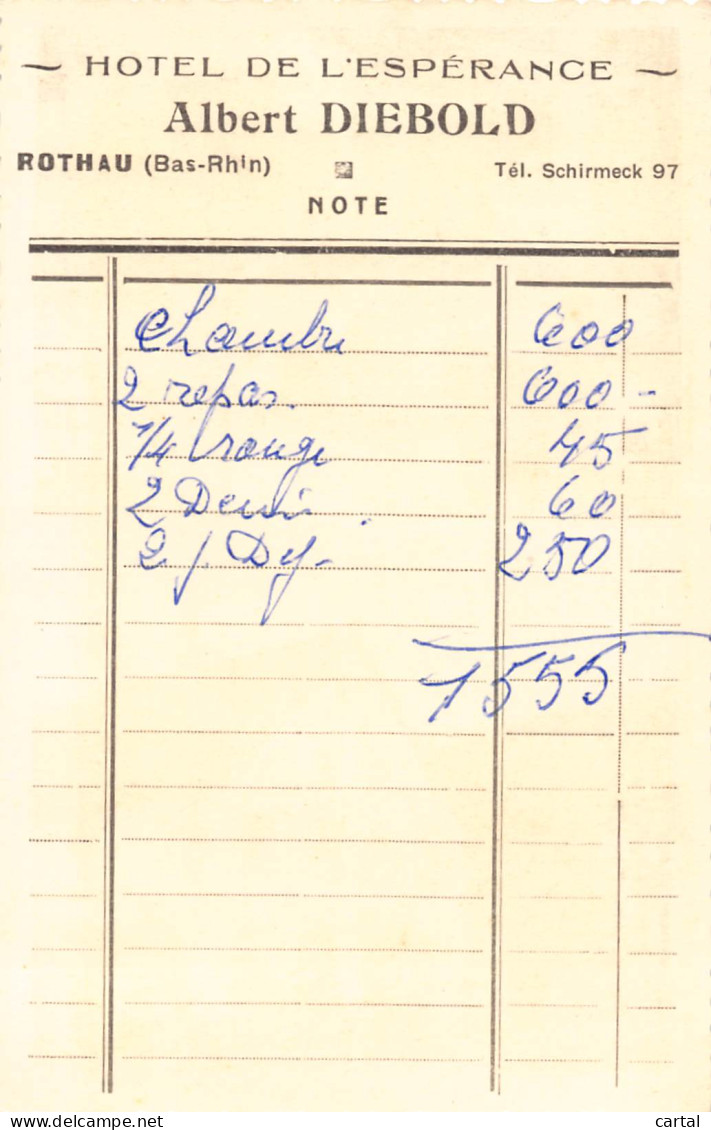 ~ HOTEL DE L'ESPÉRANCE ~
Albert DIEBOLD
ROTHAU (Bas-Rhin) Tél. Schirmeck 97
NOTE
Chambre 600
2 repas. 600 -
1/4 rouge 45
2 Demi . 60
2 p. Dej. 250
1555
DELCAMPE.NET
cartal